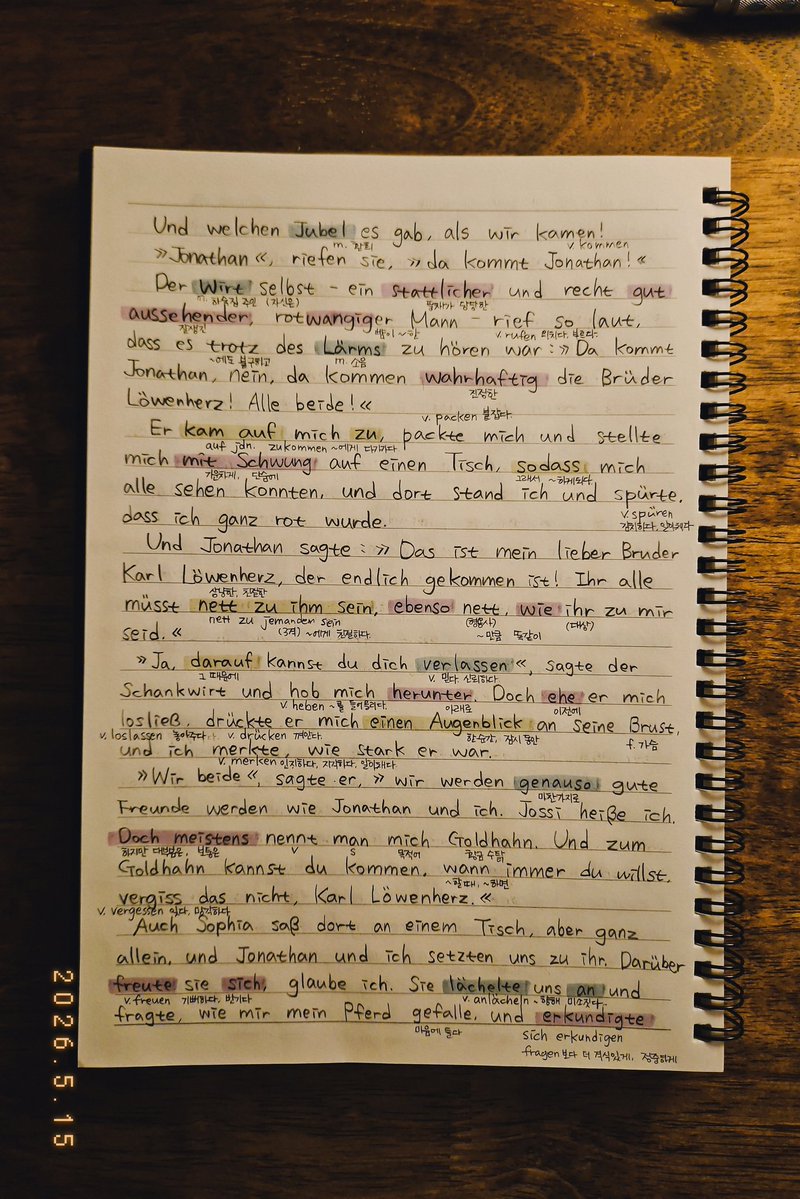 Und welchen Jubel es gab, als wir kamen!
m. 환희 v. kommen
»Jonathan«, riefen sie, »da kommt Jonathan!«
Der Wirt selbst - ein stattlicher und recht gut
m. 하숙집 주인 (자신은) 풍채가 당당한
aussehender, rotwangiger Mann - rief so laut,
잘생긴 뺨이 ~한 v. rufen 외치다, 부르다.
dass es trotz des Lärms zu hören war: »Da kommt
~에도 불구하고 m. 소음
Jonathan, nein, da kommen wahrhaftig die Brüder
진정한
Löwenherz! Alle beide!«
v. packen 붙잡다
Er kam auf mich zu, packte mich und stellte
auf jdn. zukommen ~에게 다가가다
mich mit Schwung auf einen Tisch, sodass mich
기운차게, 단숨에 그래서, ~하게되다.
alle sehen konnten, und dort stand ich und spürte,
dass ich ganz rot wurde.
v. spüren
감지하다, 알아채다
Und Jonathan sagte: »Das ist mein lieber Bruder
Karl Löwenherz, der endlich gekommen ist! Ihr alle
상냥한, 친절한
müsst nett zu ihm sein, ebenso nett, wie ihr zu mir
nett zu jemanden sein (형용사) (대상)
seid.«
(3격) ~에게 친절하다. ~만큼 똑같이
»Ja, darauf kannst du dich verlassen«, sagte der
그 때문에 v. 믿다. 신뢰하다.
Schankwirt und hob mich herunter. Doch ehe er mich
v. heben ~를 들어올리다. 아래로 이전에
losließ, drückte er mich einen Augenblick an seine Brust,
v. loslassen 놓아주다. v. drücken 껴안다. 한순간, 잠시 동안 f. 가슴
und ich merkte, wie stark er war.
v. merken 인지하다, 지각하다, 알아채다.
»Wir beide«, sagte er, »wir werden genauso gute
마찬가지로
Freunde werden wie Jonathan und ich. Jossi heiße ich.
Doch meistens nennt man mich Goldhahn. Und zum
하지만 대부분은, 보통은 V S 목적어 황금 수탉
Goldhahn kannst du kommen, wann immer du willst,
~할 때, ~하면
vergiss das nicht, Karl Löwenherz.«
v. vergessen 잊다, 망각하다
Auch Sophia saß dort an einem Tisch, aber ganz
allein, und Jonathan und ich setzten uns zu ihr. Darüber
freute sie sich, glaube ich. Sie lächelte uns an und
v. freuen 기뻐하다, 반기다 v. anlächeln ~향해 미소짓다.
fragte, wie mir mein Pferd gefalle, und erkundigte
마음에 들다 sich erkundigen
fragen보다 더 격식있게, 정중하게
2026.5.15